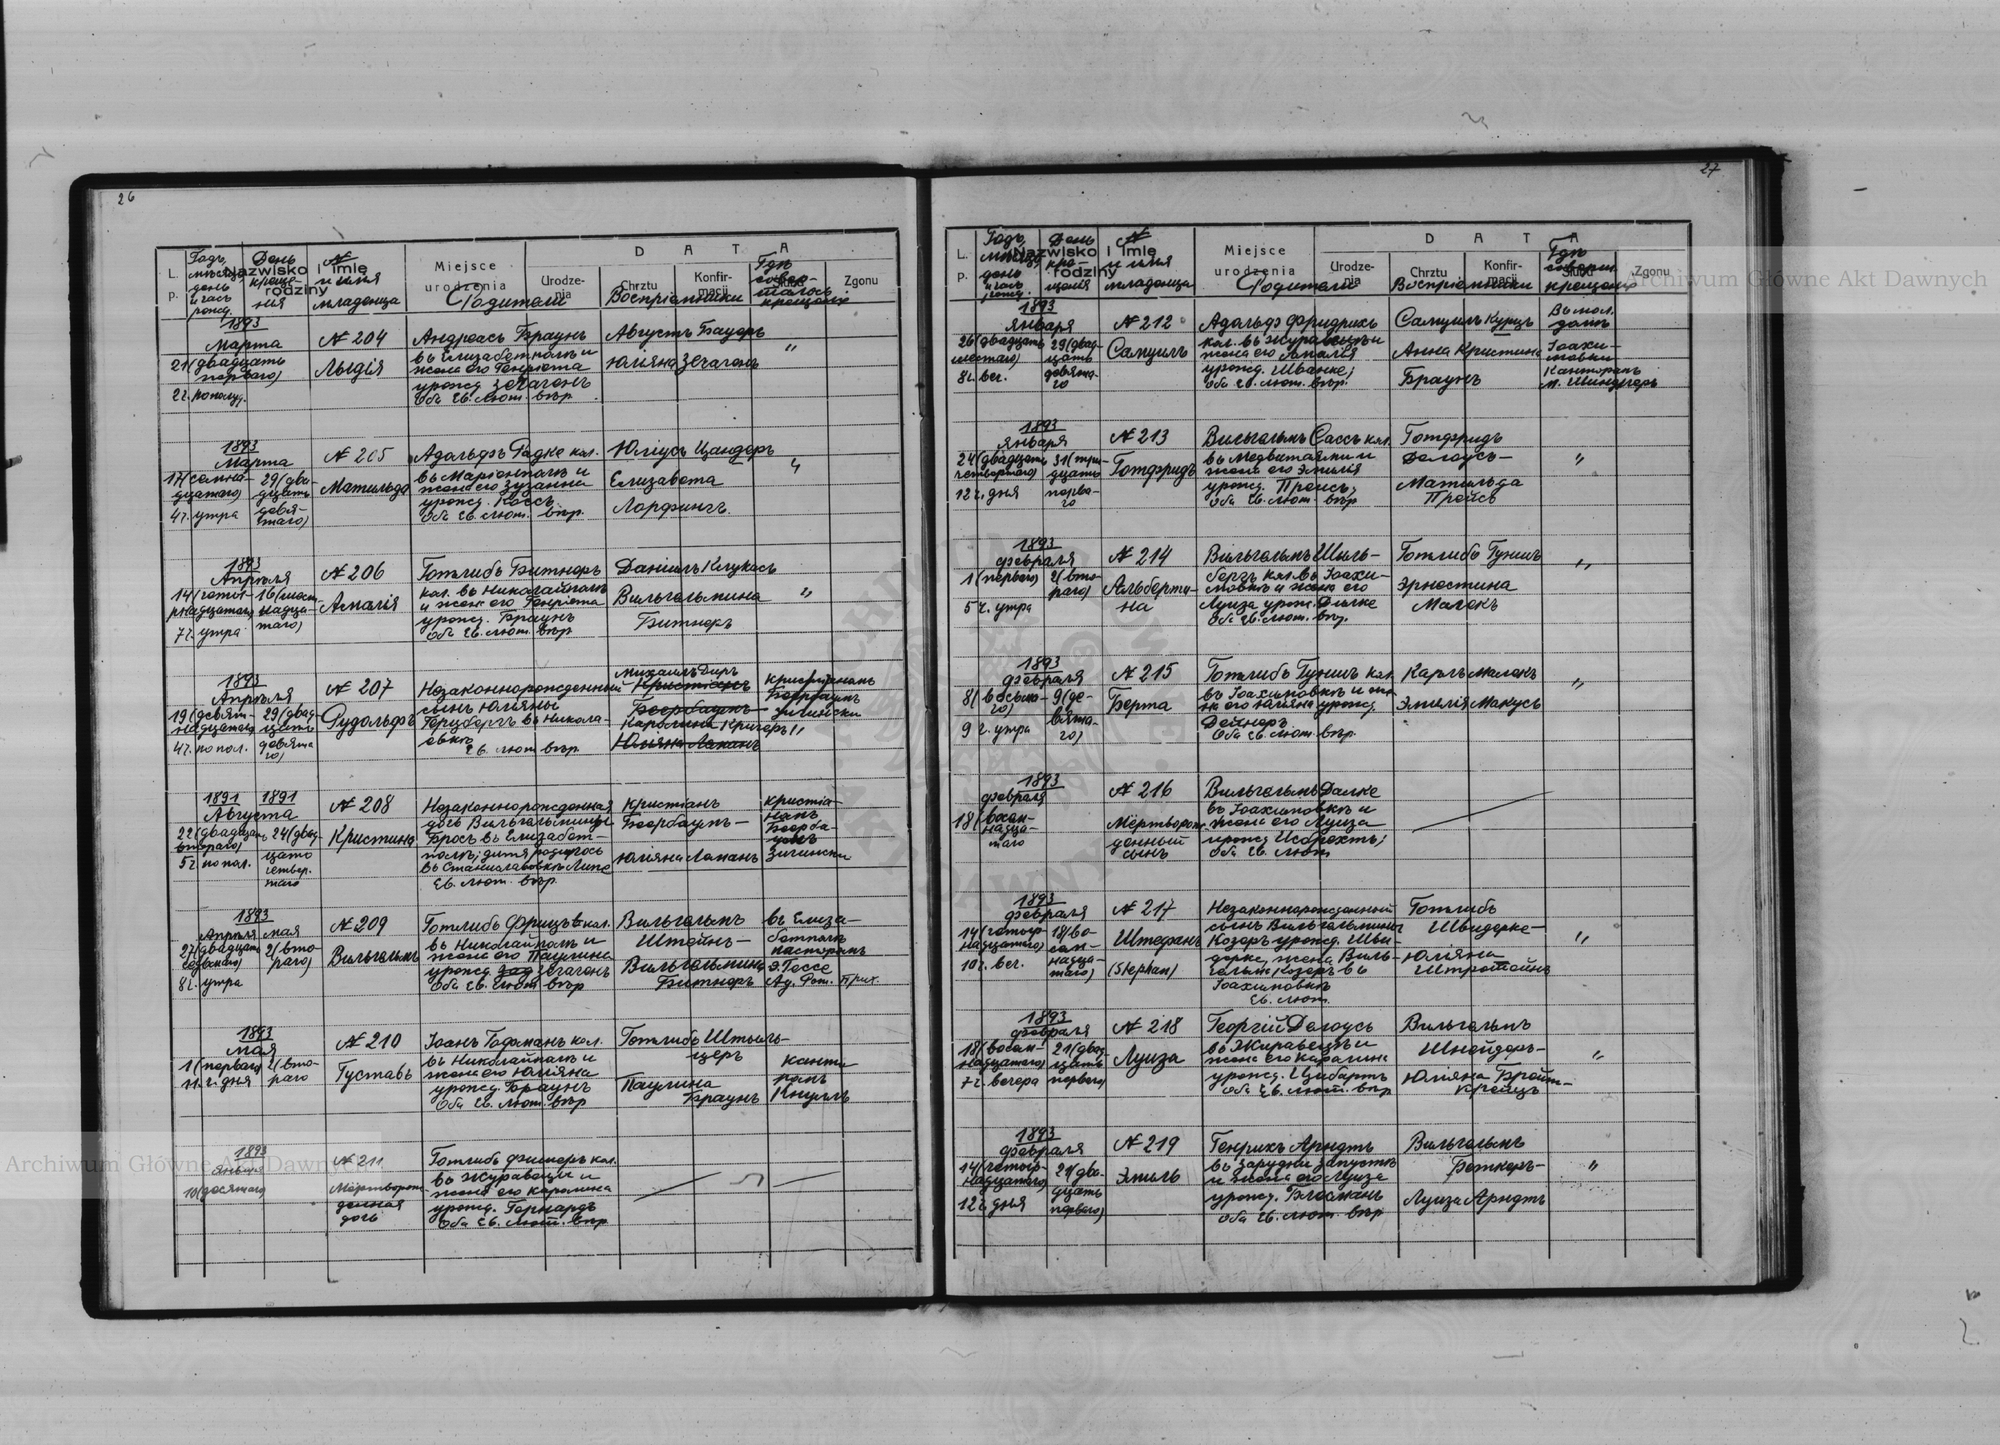 26
L. p.
Nazwisko i imię rodziny
Miejsce urodzenia
D A T A
Urodze- nia
Chrztu
Konfir- macji
Ślubu
Zgonu
Годъ, мѣсяцъ, день и часъ рожд.
День креще- нія
№ и имя младенца
Родители
Воспріемники
Гдѣ совер- шалось крещеніе
1893
Марта
21 (двадцать перваго)
2 ч. пополуд.
№ 204
Лыдія
Андреасъ Браунъ
въ Елизабетполѣ и
жена его Генріета
урожд. Зечагенъ
Оба Ев. Лют. вѣр.
Августъ Бауеръ
Юліяна Зечагенъ
"
1893
Марта
17 (семна- дцатаго)
4 ч. утра
29 (два- дцать девя- таго)
№ 205
Матильда
Адальфъ Радке кол.
въ Маріонполѣ и
жена его Зузанна
урожд. Кассъ
Оба Ев. Лют. вѣр.
Юліусъ Цандеръ
Елизабета
Лорфингъ.
"
1893
Апрѣля
7 ч. утра
№ 206
Амалія
Готлибъ Битнеръ
кол. въ Николайполѣ
и жена его Генріета
урожд. Браунъ
Оба Ев. Лют. вѣр
Даніилъ Клукасъ
Вильгельмина
Битнеръ
"
1893
Апрѣля
19 (девят- надцатаго)
4 ч. по пол.
29 (двад- цать девята го)
№ 207
Рудольфъ
Незаконнорожденный
сынъ Юліяны
Герцбергъ въ Никола-
евкѣ
Ев. Лют вѣр
Михаилъ Диръ
Христіанъ
Беербаумъ
Каролина Кригеръ
Юліяна Ломанъ
Христіаномъ
Беербаумъ
Зигински
1891
1891
Августа
22 (двадцать втораго)
5 ч. по пол.
24 (двад- цать четвер. таго
№ 208
Кристина
Незаконнорожденная
дочь Вильгельмины
Бросъ въ Елизабет-
полѣ; дитя родилось
въ Станиславовкѣ
Ев. Лют. вѣр
Кристіанъ
Беербаумъ —
Юліяна Ломанъ
Кристіа-
номъ
Беерба-
умъ
Зигински
1893
Апрѣля мая
27 (двадцать седьмаго)
8 ч. утра
2 (вто- раго)
№ 209
Вильгельмъ
Готлибъ Фрицъ кол.
въ Николайполѣ и
жена его Паулина
урожд. Зечагенъ
Оба Ев. Лют вѣр
Вильгельмъ
Штейнъ —
Вильгельмина
Битнеръ
въ Елиза-
бетполѣ
пасторомъ
Э. Гессе
1893
мая
1 (перваго)
11 ч. дня
2 (вто- раго
№ 210
Густавъ
Іоанъ Гофманъ кол.
въ Николайполѣ и
жена его Юліяна
урожд. Браунъ
Оба Ев. Лют. вѣр
Готлибъ Штыль-
церъ
Паулина
Браунъ
Кнуллъ
1893
Января
10 (десятаго
№ 211
Мертворож- денная дочь
въ Журавецѣ и
жена его Каролина
урожд. Гернардъ
Оба Ев. Лют. вѣр
27
L. p.
Nazwisko i imię rodziny
Miejsce urodzenia
D A T A
Urodze- nia
Chrztu
Konfir- macji
Ślubu
Zgonu
Годъ, мѣсяцъ, день и часъ рожд.
День кре- щенія
№ и имя младенца
Родители
Воспріемники
Гдѣ соверш. крещеніе
1893
Января
26 (двадцать шестаго)
8 ч. веч.
29 (двад- цать девята- го
№ 212
Самуилъ
Адольфъ Фридрихъ
кол. въ Журавецѣ и
жена его Амалія
урожд. Шванке;
Оба Ев. Лют. вѣр.
Самуилъ Курцъ
Анна Кристина
Браунъ
Въ мол.
домѣ
Іоахи-
мовки
Канторомъ
М. Шиндлеръ
1893
Января
24 (двадцать четвертаго)
12 ч. дня
31 (три- дцать перва- го
№ 213
Готфридъ
Вильгельмъ Сассъ кол.
жена его Эмилія
урожд. Прейсъ;
Оба Ев. Лют. вѣр
Готфридъ
Делоусъ —
Матильда
Прейсъ
"
1893
Февраля
1 (перваго)
5 ч. утра
2 (вто- раго)
№ 214
Альберти- на
Вильгельмъ Шыль-
бергъ кол. въ Іоахи-
мовкѣ и жена его
Луиза урож. Дымке
Оба Ев. Лют. вѣр.
Готлибъ Гунишъ
Эрнестина
Малекъ
"
1893
Февраля
8 (восьма- го)
9 ч. утра
9 (де- вята- го)
№ 215
Берта
Готлибъ Гунишъ кол.
въ Іоахимовкѣ и же-
на его Юліяна урожд.
Дейнеръ
Оба Ев. Лют. вѣр
Карлъ Малекъ
Эмилія Макусъ
"
1893
Февраля
18 (восем- надца- таго
№ 216
Мертворож- денный сынъ
Вильгельмъ Далке
въ Іоахимовкѣ и
жена его Луиза
урожд. Исбрехтъ;
Оба Ев. Лют
1893
Февраля
14 (четыр- надцатаго)
10 ч. веч.
18 (во- сем- надца- таго)
№ 217
Штефанъ
(Stephan)
Незаконнорожденный
сынъ Вильгельмины
Козеръ урожд. Шви-
дерке, жена Виль-
гельма Козеръ въ
Іоахимовкѣ
Ев. Лют.
Готлибъ
Швидерке —
Юліяна
Штротейнъ
"
1893
Февраля
18 (восем- надцатаго)
7 ч. вечера
21 (двад- цать перваго)
№ 218
Луиза
Георгій Делоусъ
въ Журавецѣ и
жена его Каролина
урожд. Цибартъ
Оба Ев. Лют. вѣр
Вильгельмъ
Шнейдеръ —
Юліяна Брейт-
крейцъ
"
1893
Февраля
14 (четыр- надцатаго)
12 ч. дня
21 (два- дцать перваго)
№ 219
Эмиль
Генрихъ Арндтъ
и жена его Луиза
Оба Ев. Лют. вѣр
Вильгельмъ
Беткеръ —
Луиза Арндтъ
"
Archiwum Główne Akt Dawnych
Archiwum Główne Akt Dawnych